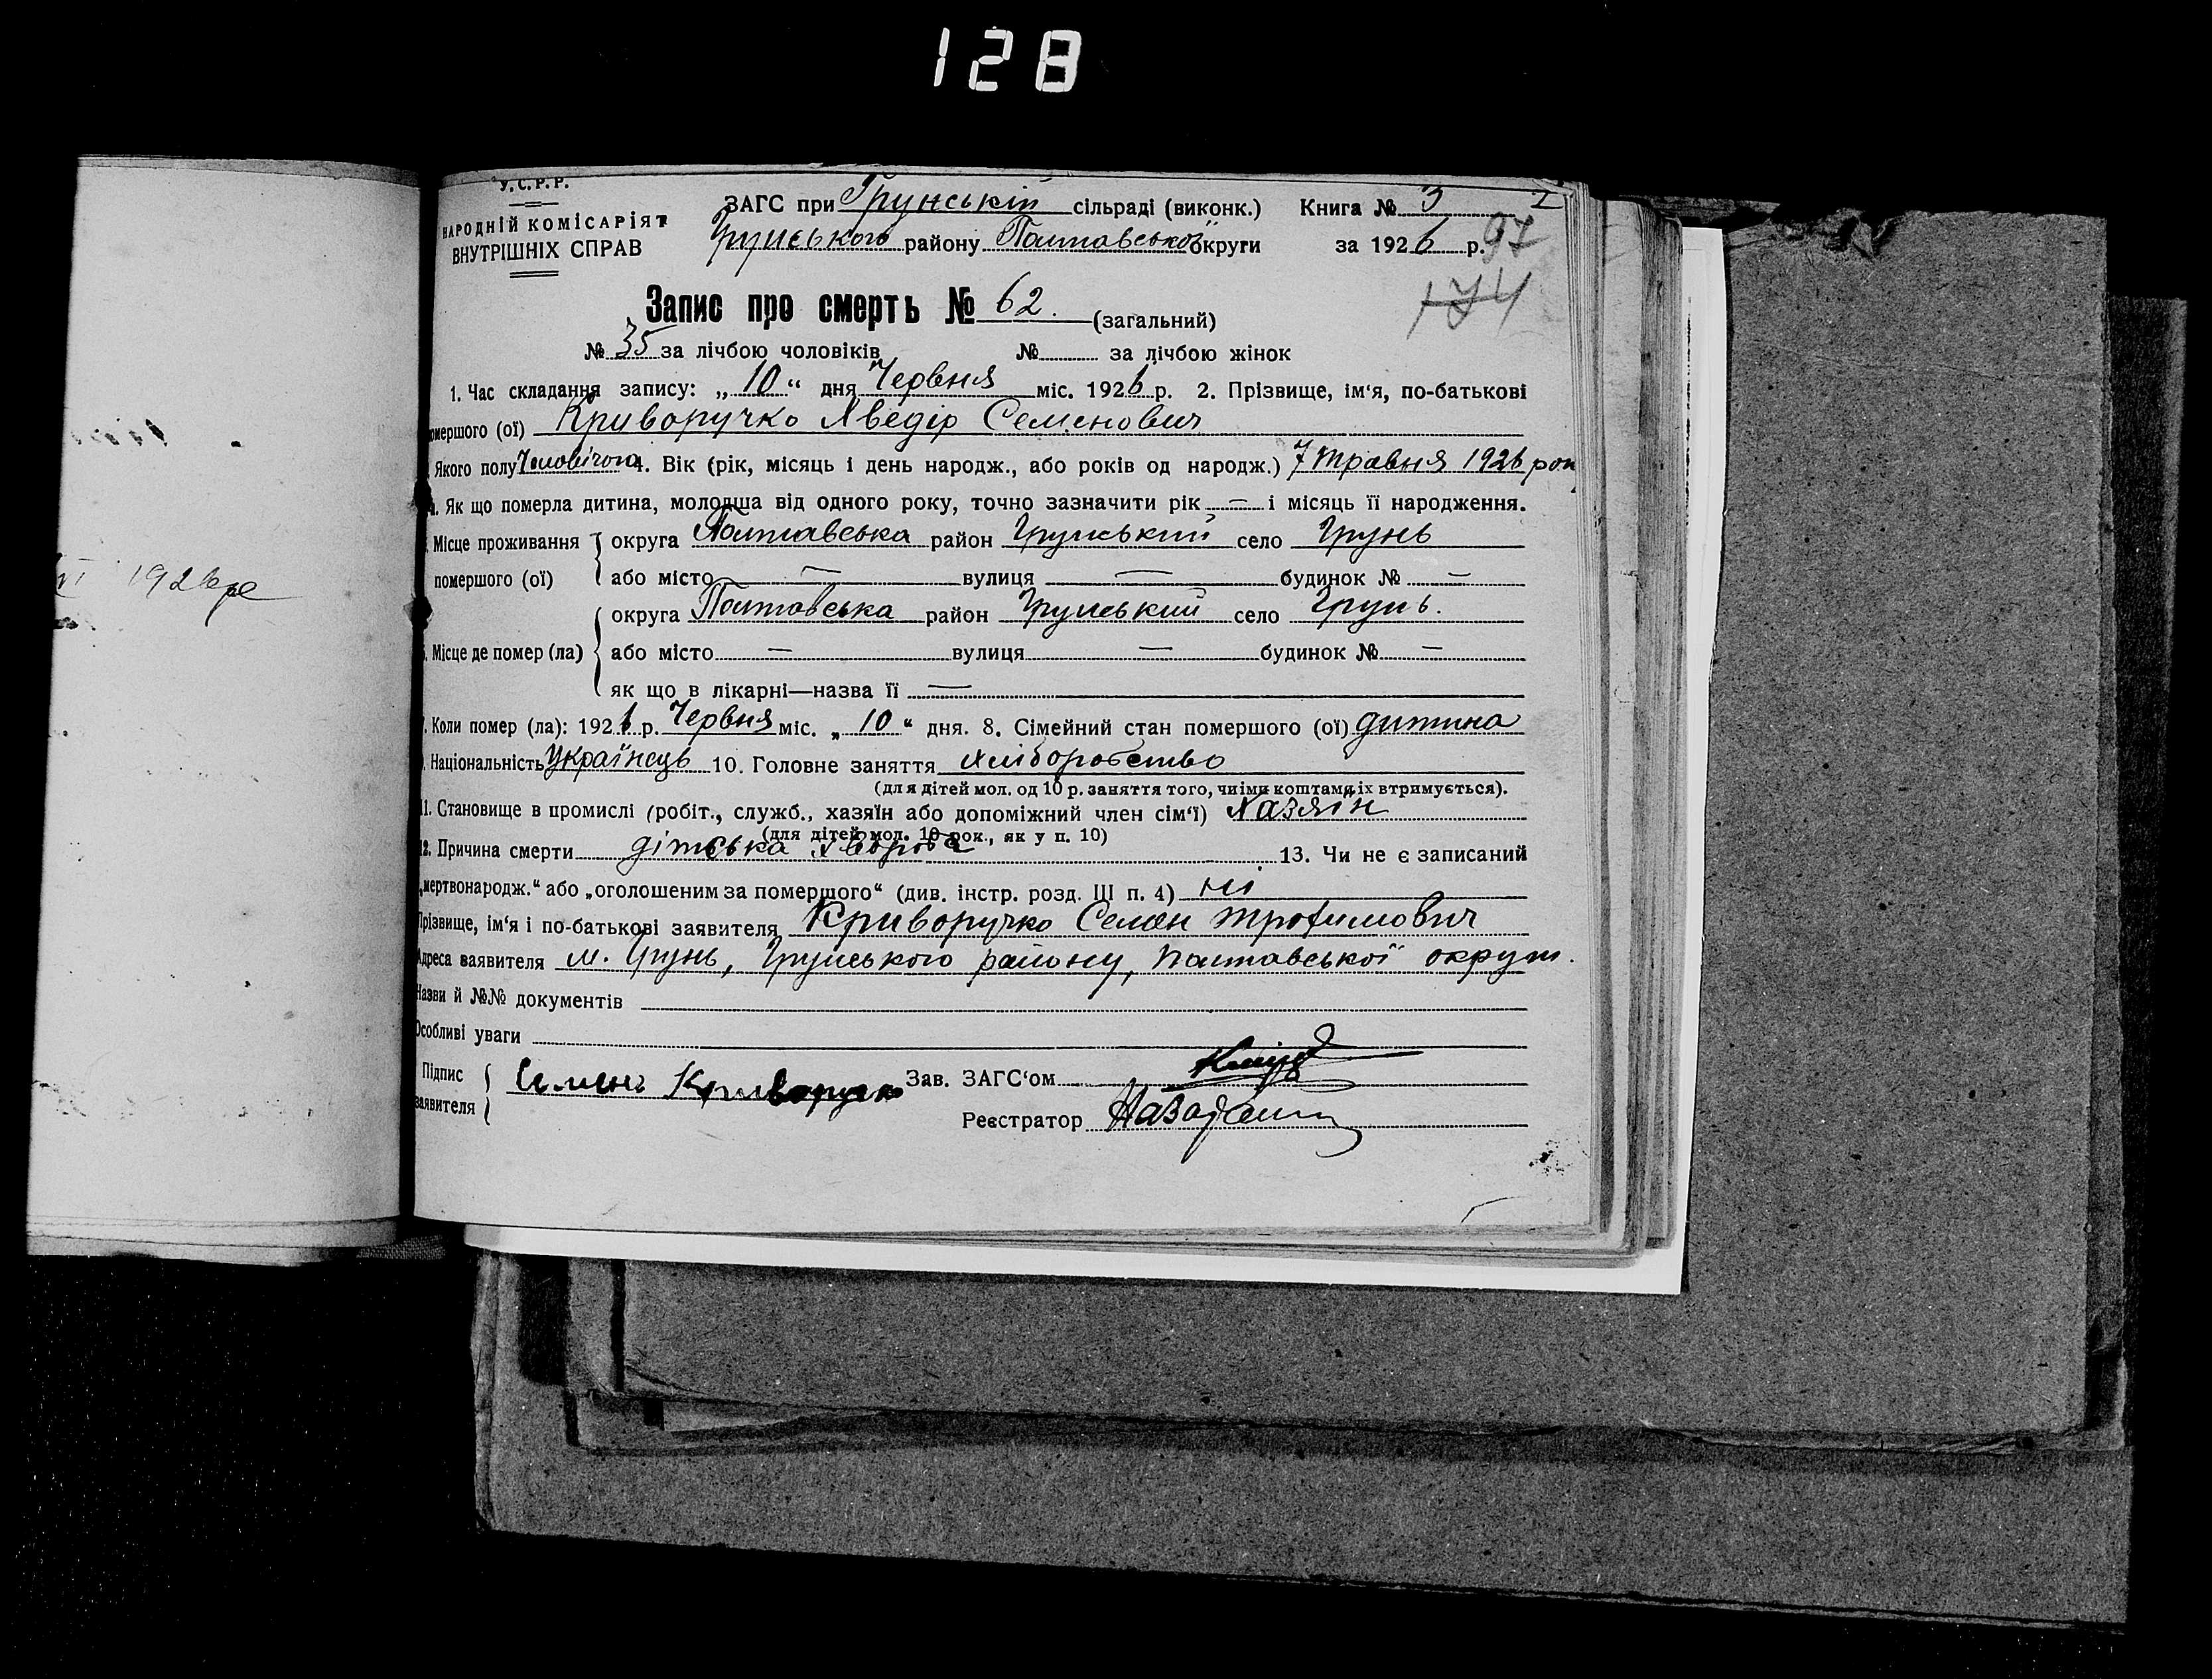 128
У.С.Р.Р.
НАРОДНІЙ КОМІСАРІЯТ
ВНУТРІШНІХ СПРАВ
ЗАГС при Грунській сільраді (виконк.) Книга № 3
Грунського району Полтавської округи за 1926 р.
97
174
Запис про смерть № 62. (загальний)
№ 35 за лічбою чоловіків № за лічбою жінок
1. Час складання запису: „10“ дня Червня міс. 1926 р. 2. Прізвище, ім‘я, по-батькові
омершого (ої) Криворучко Хведір Семенович
Якого полу Чоловічого 4. Вік (рік, місяць і день народж., або років од народж.) 7 травня 1926 рок
. Як що померла дитина, молодша від одного року, точно зазначити рік — і місяць її народження.
Місце проживання округа Полтавська район Грунський село Грунь
помершого (ої) або місто — вулиця — будинок № —
округа Полтавська район Грунський село Грунь.
Місце де помер (ла) або місто — вулиця — будинок № —
як що в лікарні—назва її —
. Коли помер (ла): 1926 р. Червня міс. „10“ дня. 8. Сімейний стан помершого (ої) дитина
. Національність Українець 10. Головне заняття хліборобство
(для дітей мол. од 10 р. заняття того, чиїми коштами їх втримується).
11. Становище в промислі (робіт., служб., хазяїн або допоміжний член сім‘ї) Хазяїн
(для дітей мол. 10 рок., як у п. 10)
12. Причина смерти дітська хвороба 13. Чи не є записаний
„мертвонародж.“ або „оголошеним за помершого“ (див. інстр. розд. III п. 4) ні
Прізвище, ім‘я і по-батькові заявителя Криворучко Семен Трофимович
Адреса заявителя м. Грунь, Грунського району, Полтавської округи.
Назви й №№ документів
Особливі уваги
Підпис
заявителя Семенъ Криворучко Зав. ЗАГС‘ом
Реєстратор